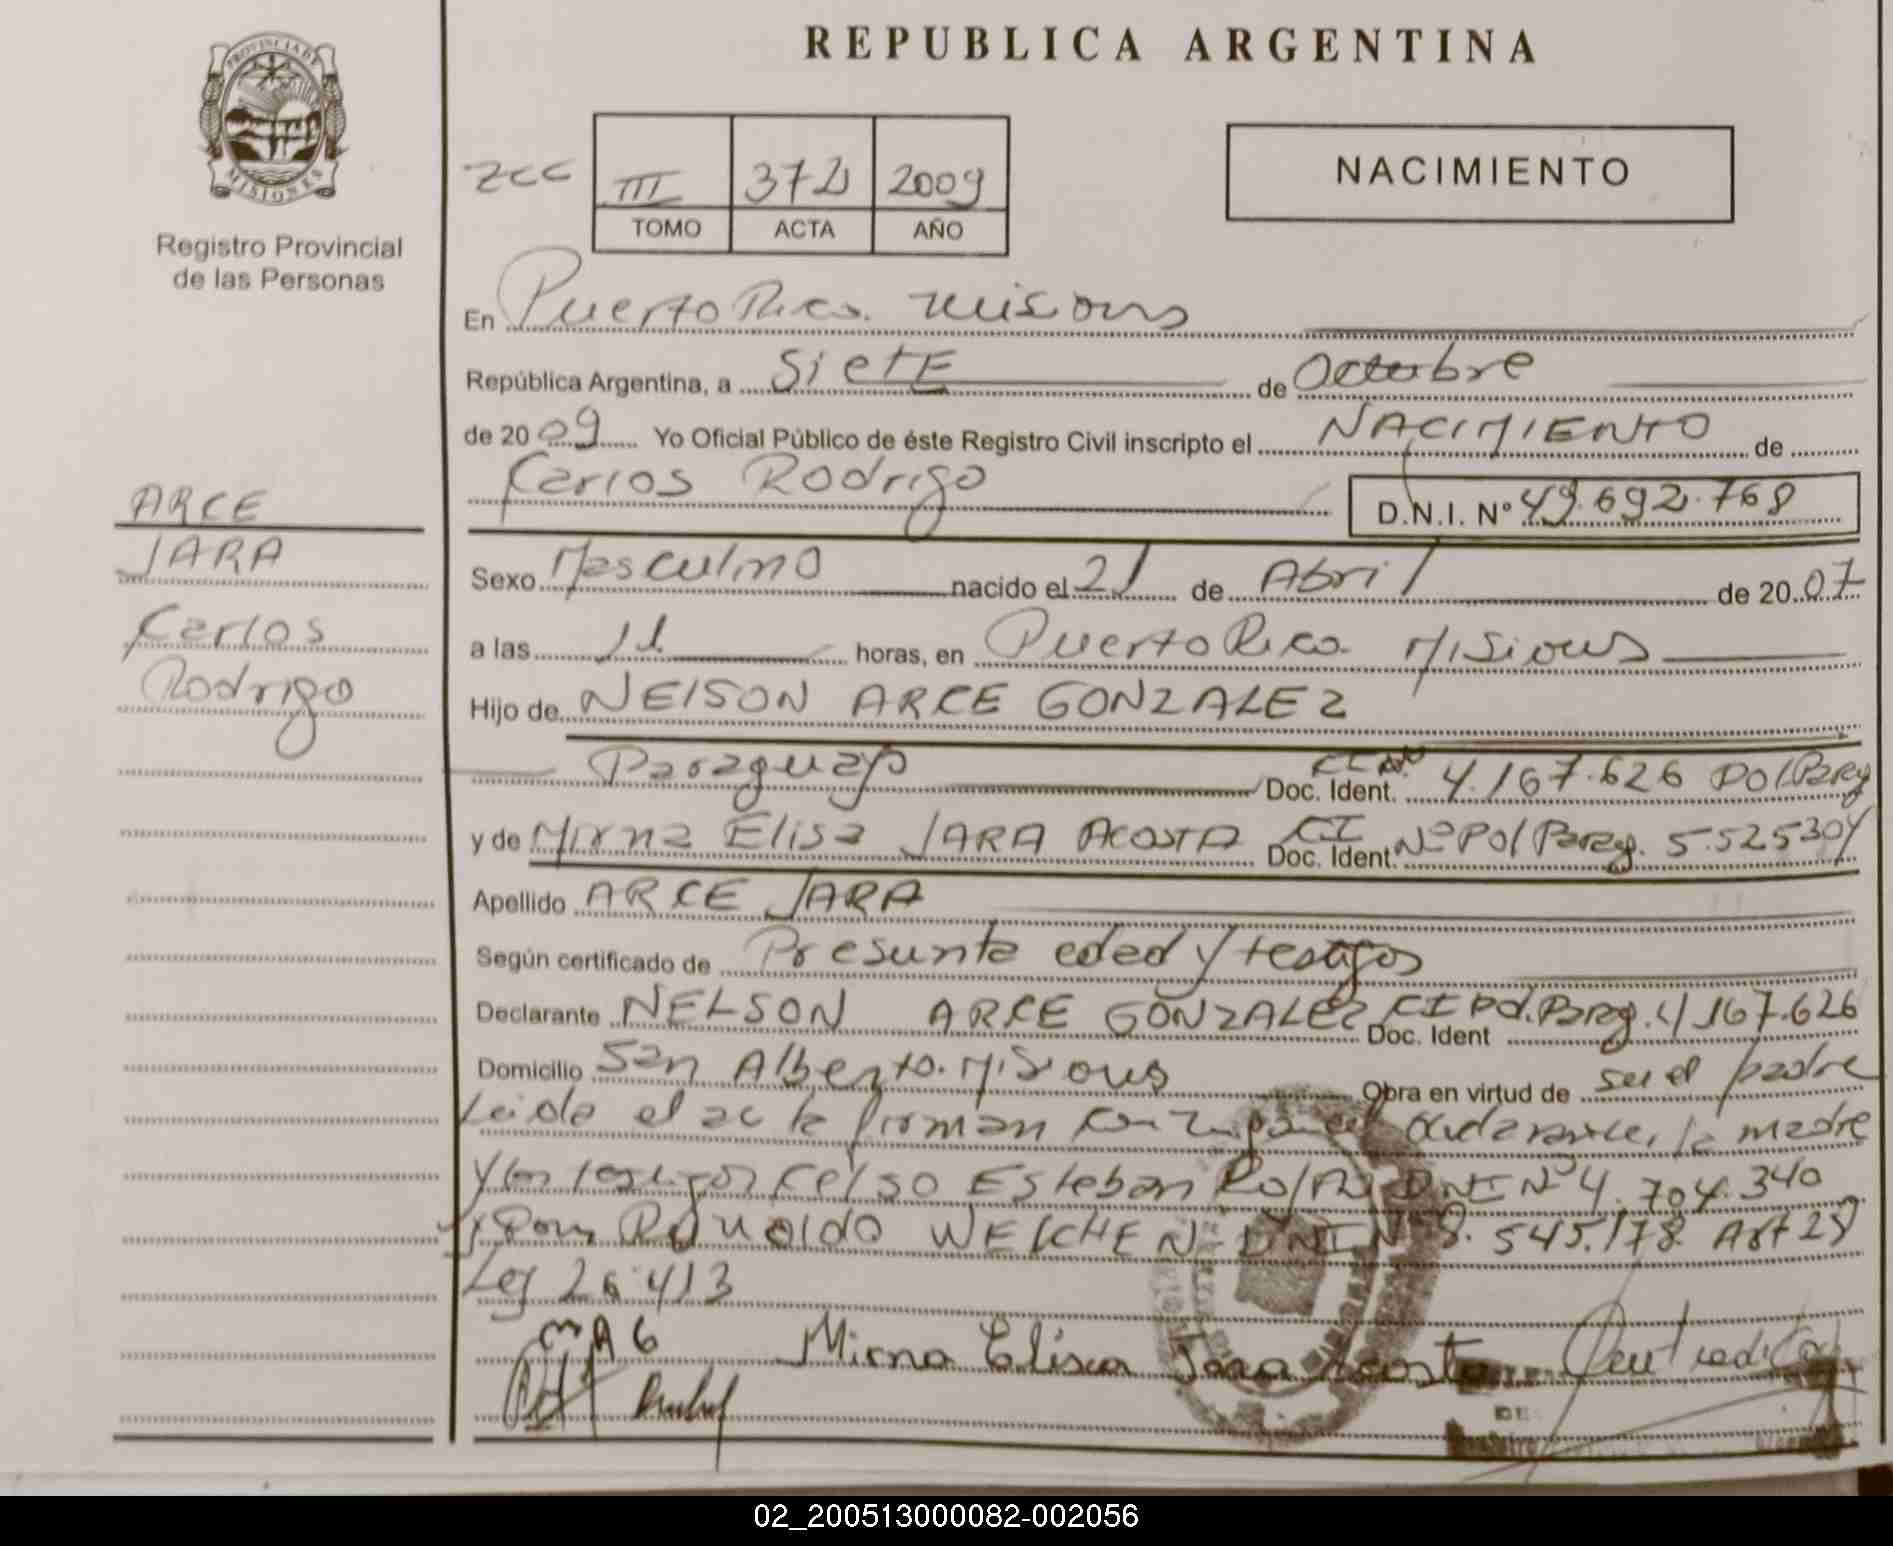 REPUBLICA ARGENTINA
PROVINCIA DE
MISIONES
Registro Provincial
de las Personas
ZCC III 372 2009
TOMO ACTA AÑO
NACIMIENTO
En Puerto Rico. Misiones
República Argentina, a Siete de Octubre
de 2009 Yo Oficial Público de éste Registro Civil inscripto el NACIMIENTO de
Carlos Rodrigo
D.N.I. Nº 49.692.768
ARCE
JARA
Carlos
Rodrigo
Sexo Masculino nacido el 21 de Abril de 2007
a las 11 horas, en Puerto Rico. Misiones
Hijo de NElSON ARCE GONZALEZ
Paraguayo Doc. Ident. CI Nº 4.167.626 Pol Parag
y de Mirna Elisa JARA ACOSTA Doc. Ident. CI Nº Pol Parag. 5.525304
Apellido ARCE JARA
Según certificado de Presunta edad y testigos
Declarante NELSON ARCE GONZALEZ Doc. Ident CI Pol. Parag. 4167.626
Domicilio San Alberto. Misiones Obra en virtud de ser el padre
Leida el acta firman el declarante, la madre
y los testigos Celso Esteban DNI Nº 4.704.340
Ronaldo WELCHEN DNI Nº 8.545.178. Art 28
Ley 26.413
Mirna Elisa Jara Acosta
DE
02_200513000082-002056